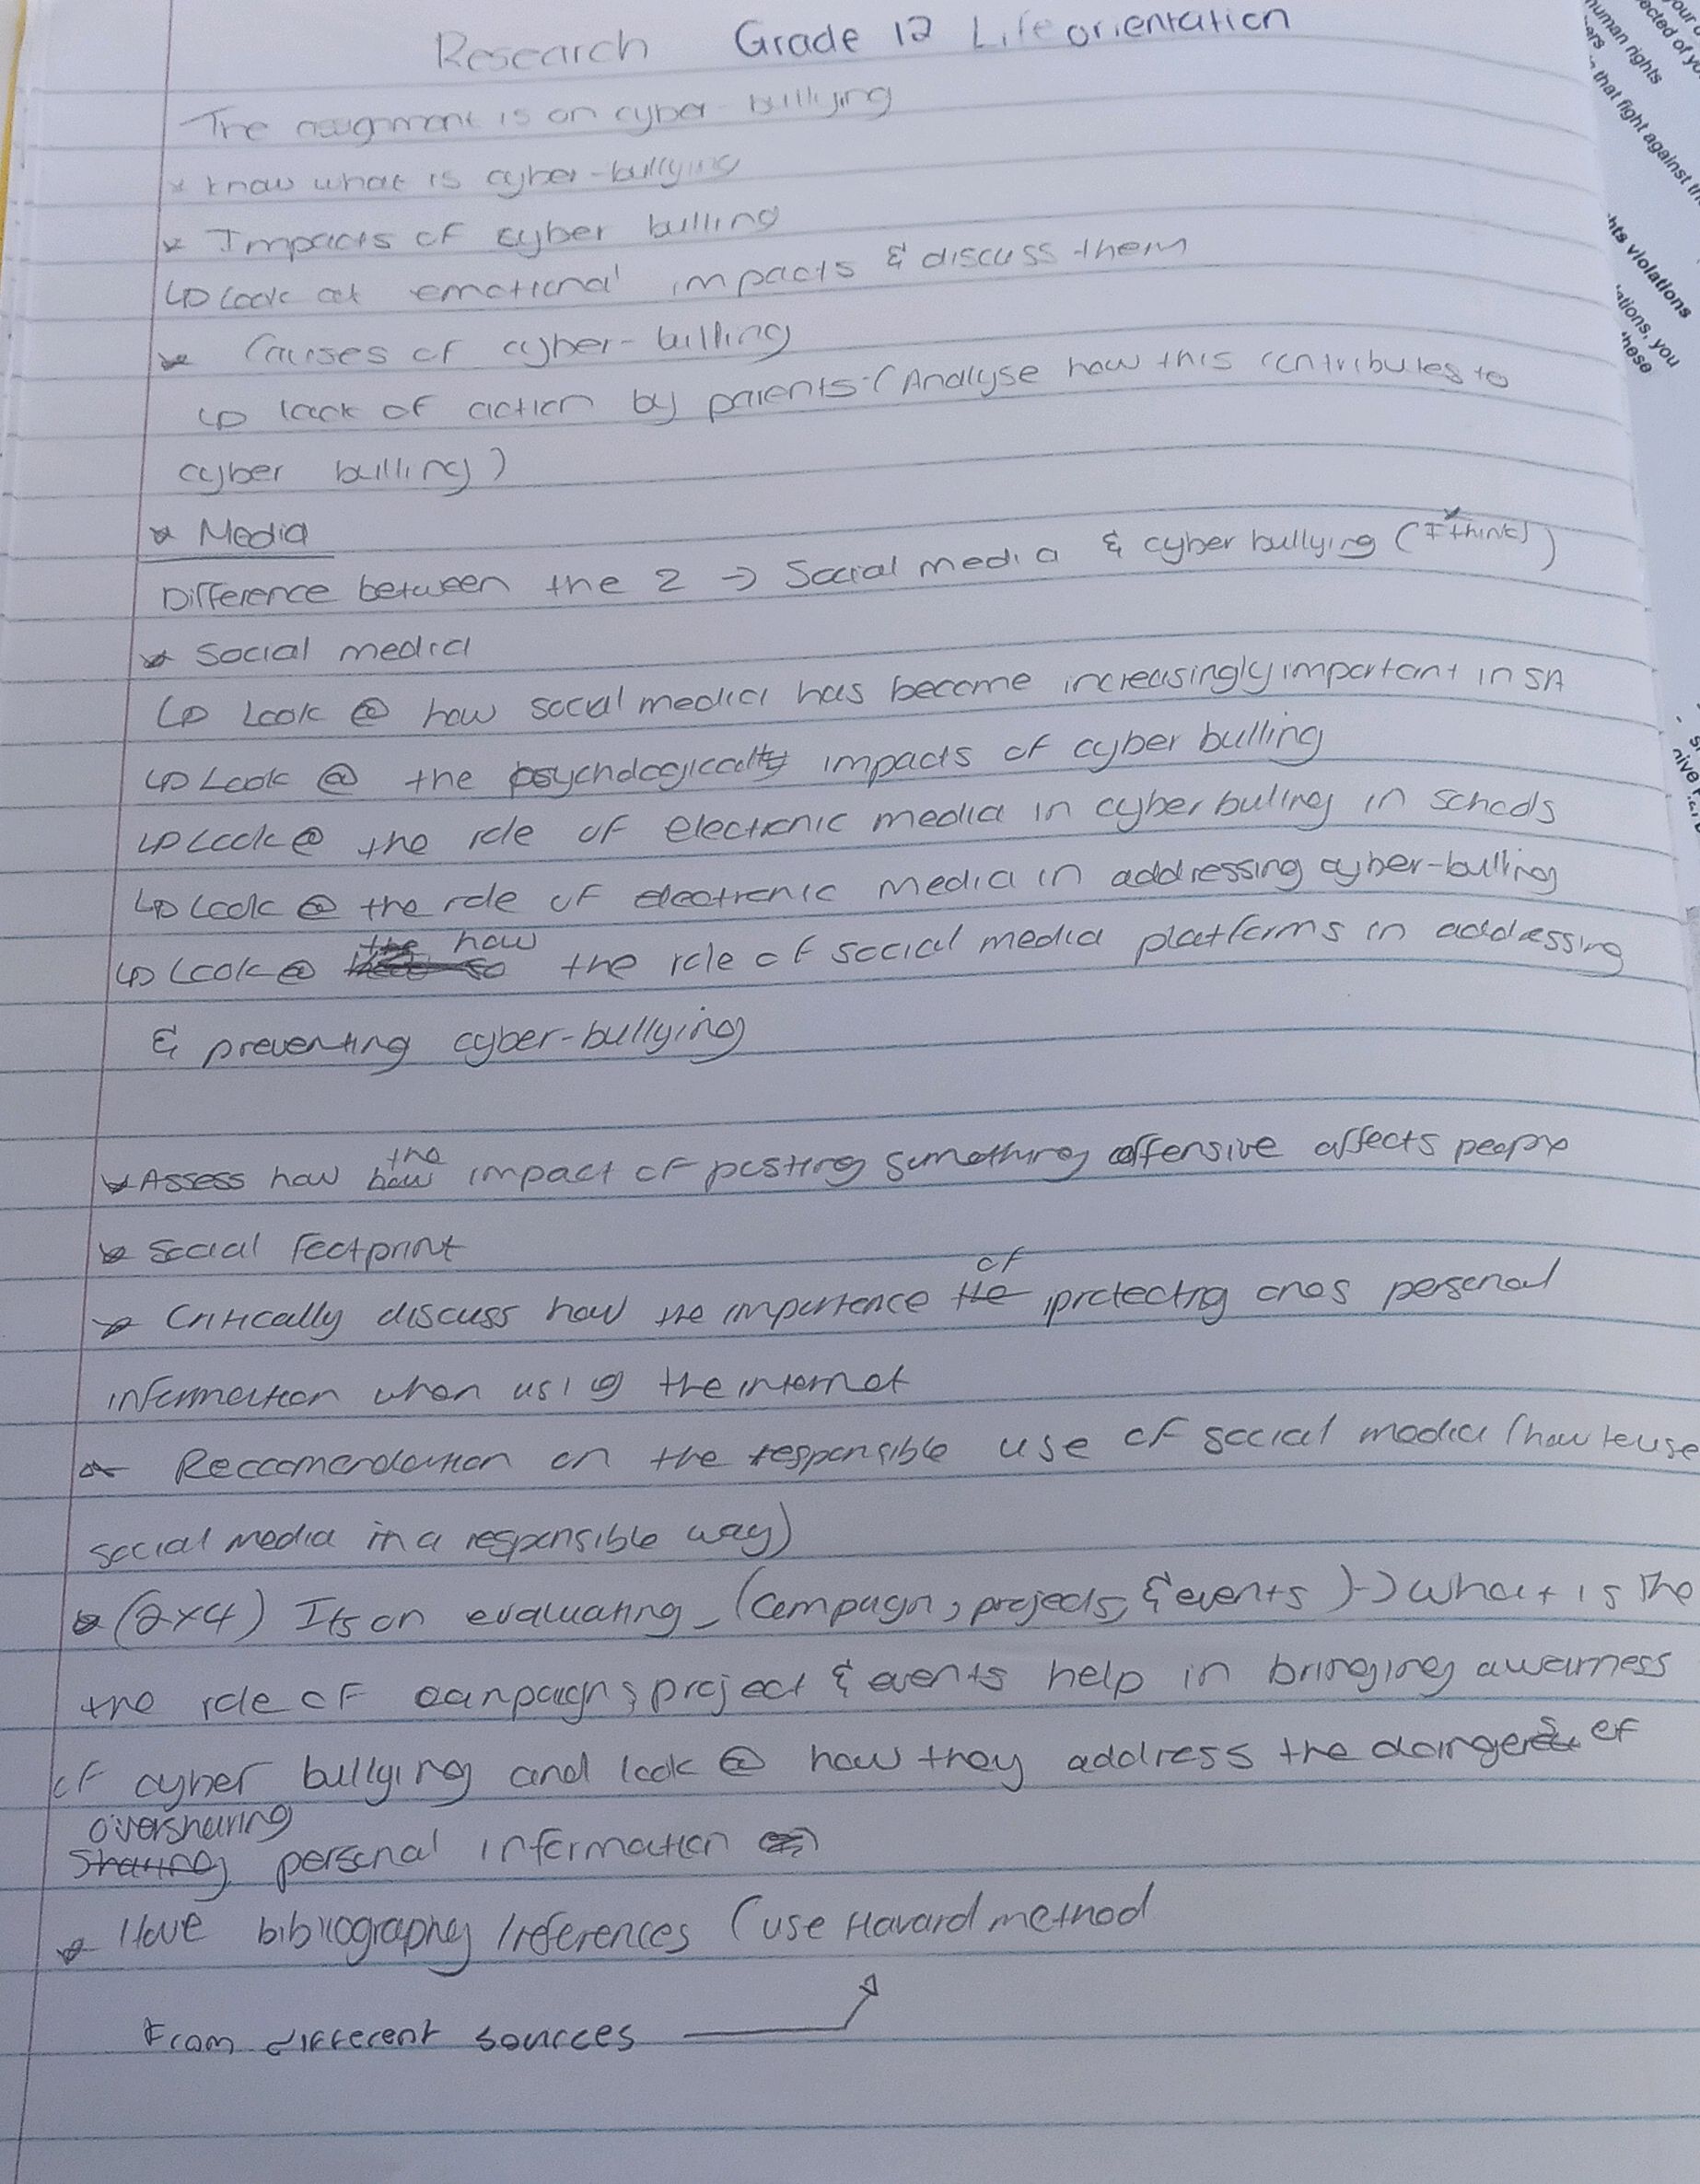 Research Grade 12 Life orientation
The assignment is on cyber-bullying
* know what is cyber-bullying
* Impacts of cyber bulling
↳ Look at emotional impacts & discuss them
* Causes of cyber-bulling
↳ lack of action by parents (Analyse how this contributes to
cyber bulling)
* Media
Difference between the 2 → Social media & cyber bullying (I think)
* Social media
↳ Look @ how social media has become increasingly important in SA
↳ Look @ the psychologically impacts of cyber bulling
↳ Look @ the role of electronic media in cyber buling in schools
↳ Look @ the role of electronic media in addressing cyber-bulling
↳ Look @ how the role of social media platforms in addressing
& preventing cyber-bullying
* Assess how the impact of posting something offensive affects people
* Social footprint
* Critically discuss how the importence of protecting ones personal
information when using the internet
* Reccomendation on the responsible use of social media (how to use
social media in a responsible way)
* (2x4) Its on evaluating - (campaign, projects, & events) → what is the
the role of campaign, project & events help in bringing awarness
of cyber bullying and look @ how they address the dangers of
oversharing personal information
* Have bibliography/references (use Havard method
From different sources
human rights
that fight against
violations
you
these